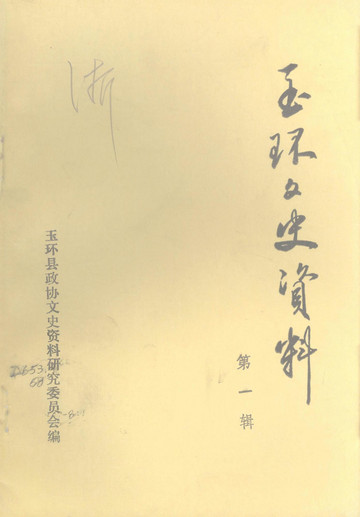 玉环文史資料
第一辑
玉环县政协文史资料研究委员会编
浙